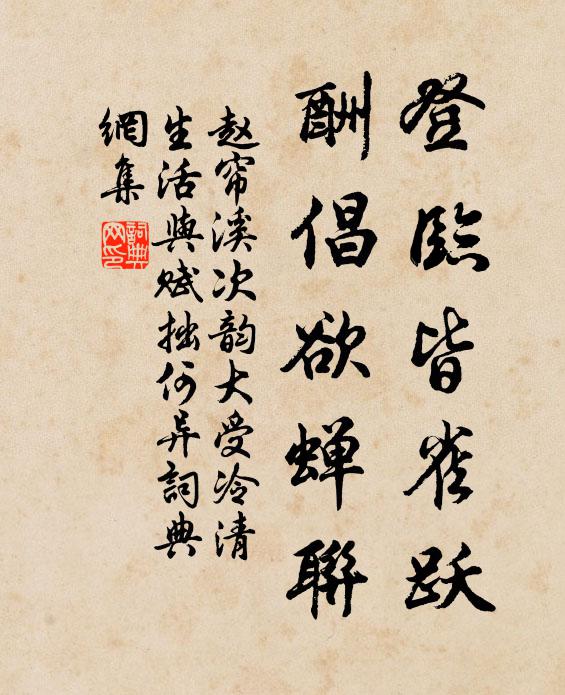 登臨皆雀跃
酬倡欲蝉聯
赵帘溪次韵大受冷清
生活與赋拙何异詞典
網集
詞典網印